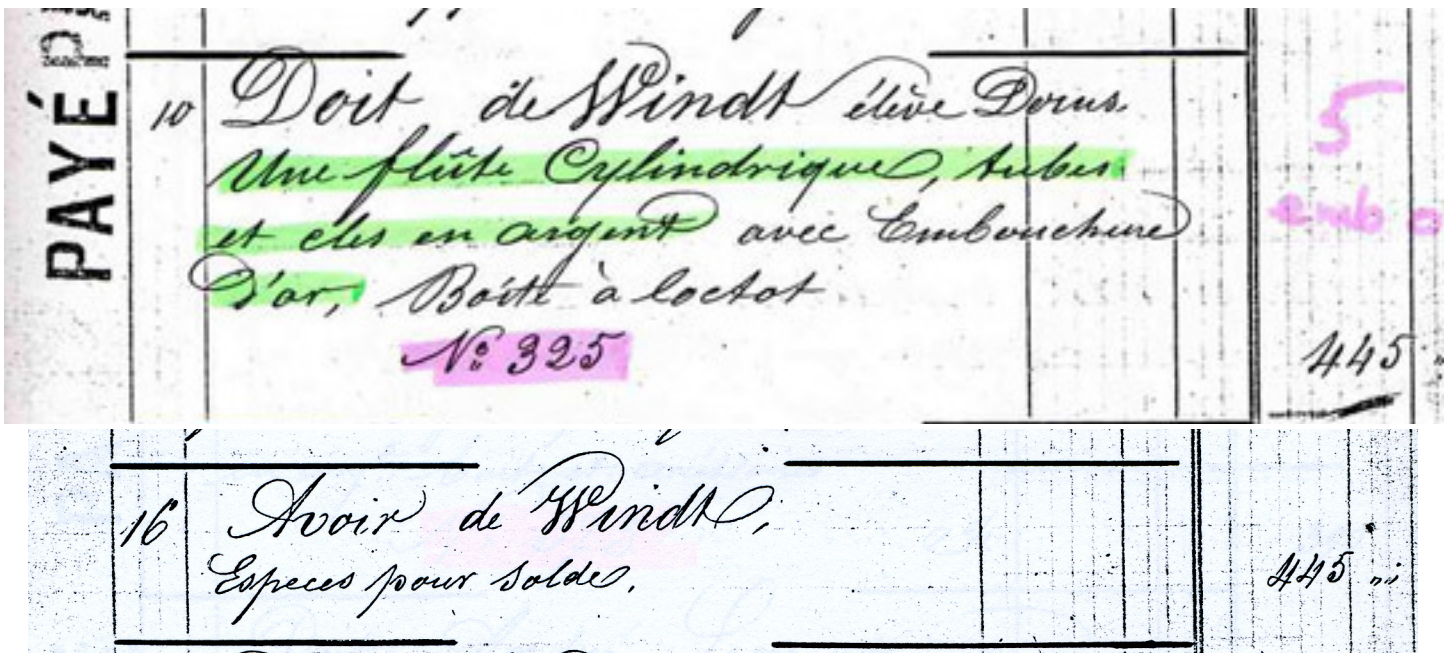 PAYÉ
10 Doit de Windt élève Dorus.
Une flûte Cylindrique, tubes
et clés en argent avec Embouchure
D'or, Boîte à loctot
N° 325
445 "
5
emb o
16 Avoir de Windt,
Especes pour Solde.
445 "